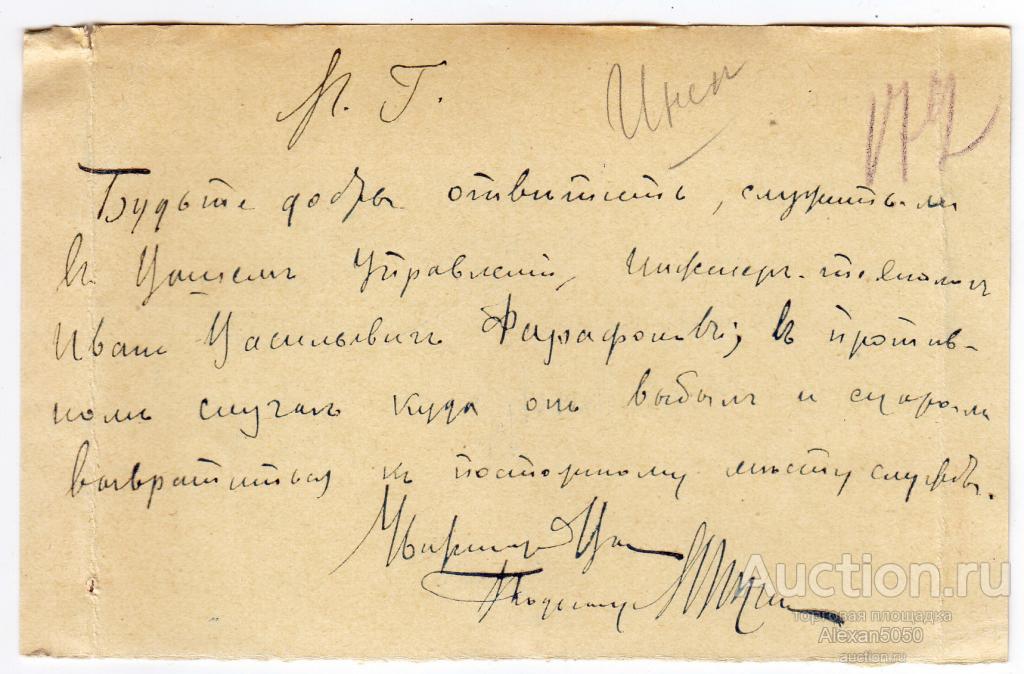 М. Г.
Будьте добры ответить, служитъ-ли
въ Вашемъ Управленіи, инженеръ-технологъ
Иванъ Васильевичъ Фарафоновъ; въ против-
номъ случаѣ куда онъ выбылъ и скоро-ли
возвратиться къ мѣсту службы.
Auction.ru
торговая площадка
Alexan5050
auction.ru